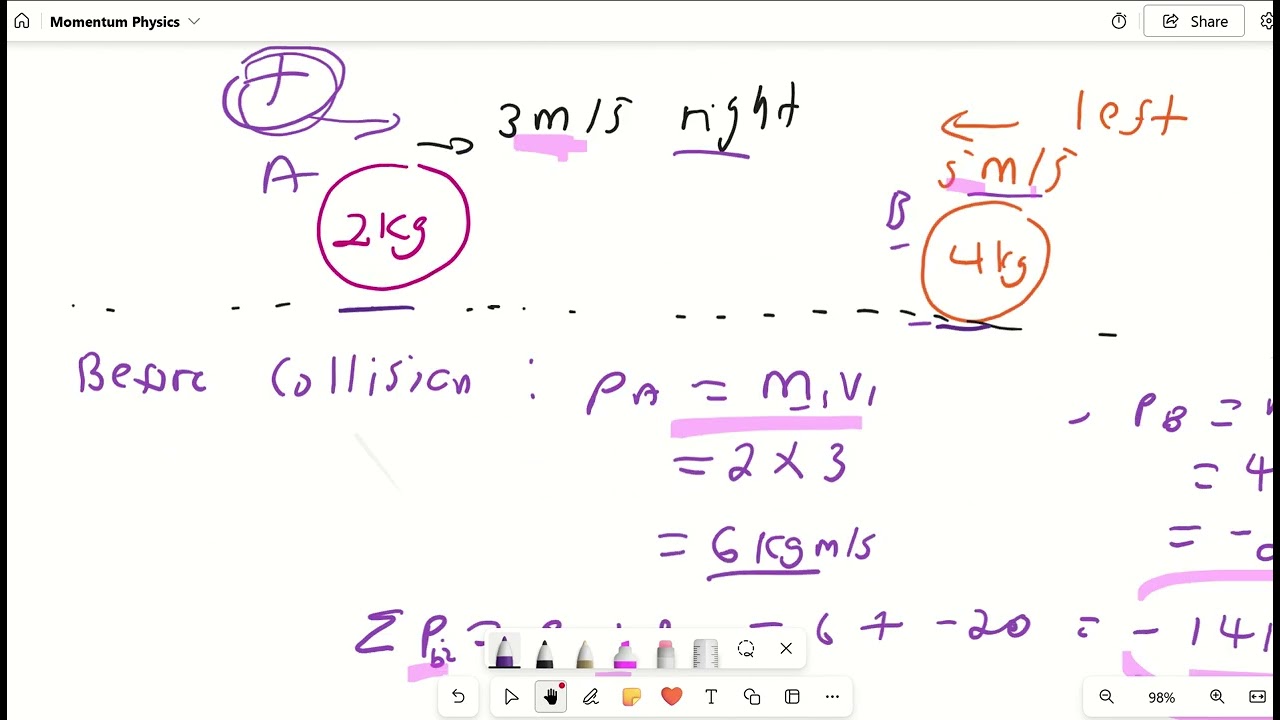 Momentum Physics
Share
+
3 m/s right
left
5 m/s
A
B
2kg
4kg
Before Collision : PA = m1v1 , PB =
= 2 × 3 = 4
= 6 kgm/s = -
Σ Pbi = = 6 + -20 = - 14
98%